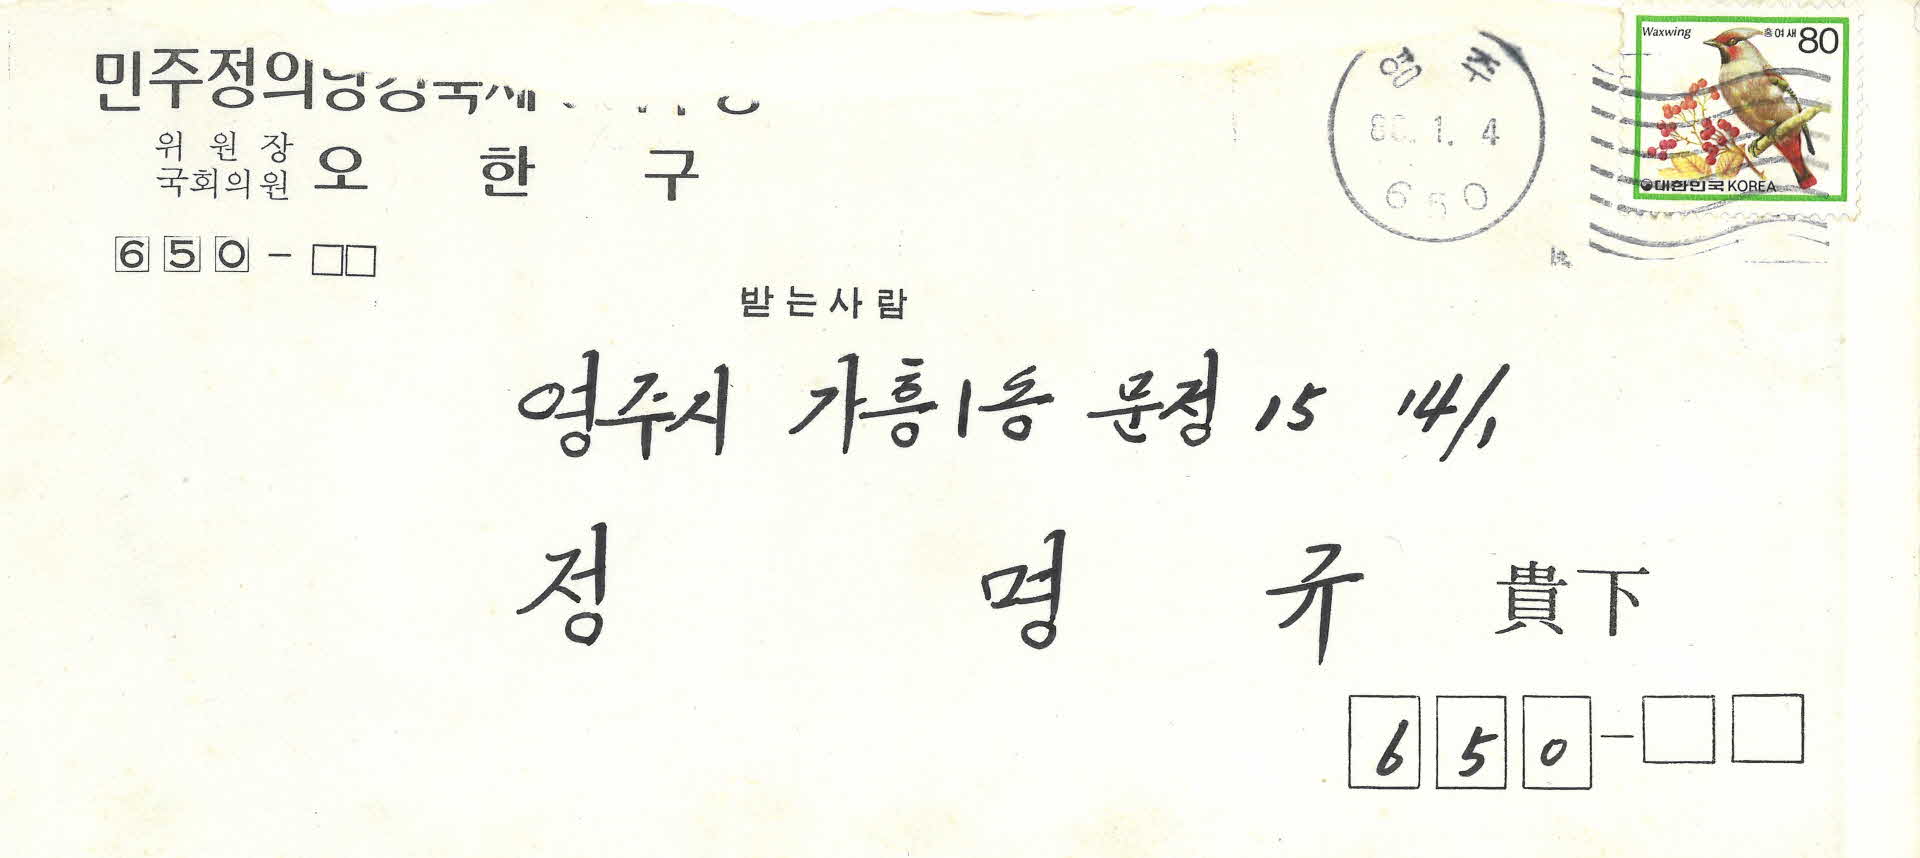 민주정의당경북제
위원장
국회의원 오 한 구
650-
Waxwing 홍여새 80
대한민국 KOREA
영주
1. 4
650
받는사람
영주시 가흥1동 문정 15 14/1
정 명 규 貴下
650-